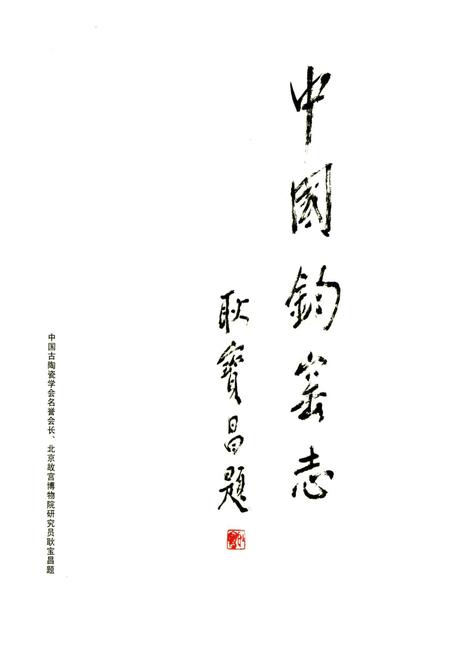 中國鈞窯志
耿寶昌題
中国古陶瓷学会名誉会长、北京故宫博物院研究员耿宝昌题